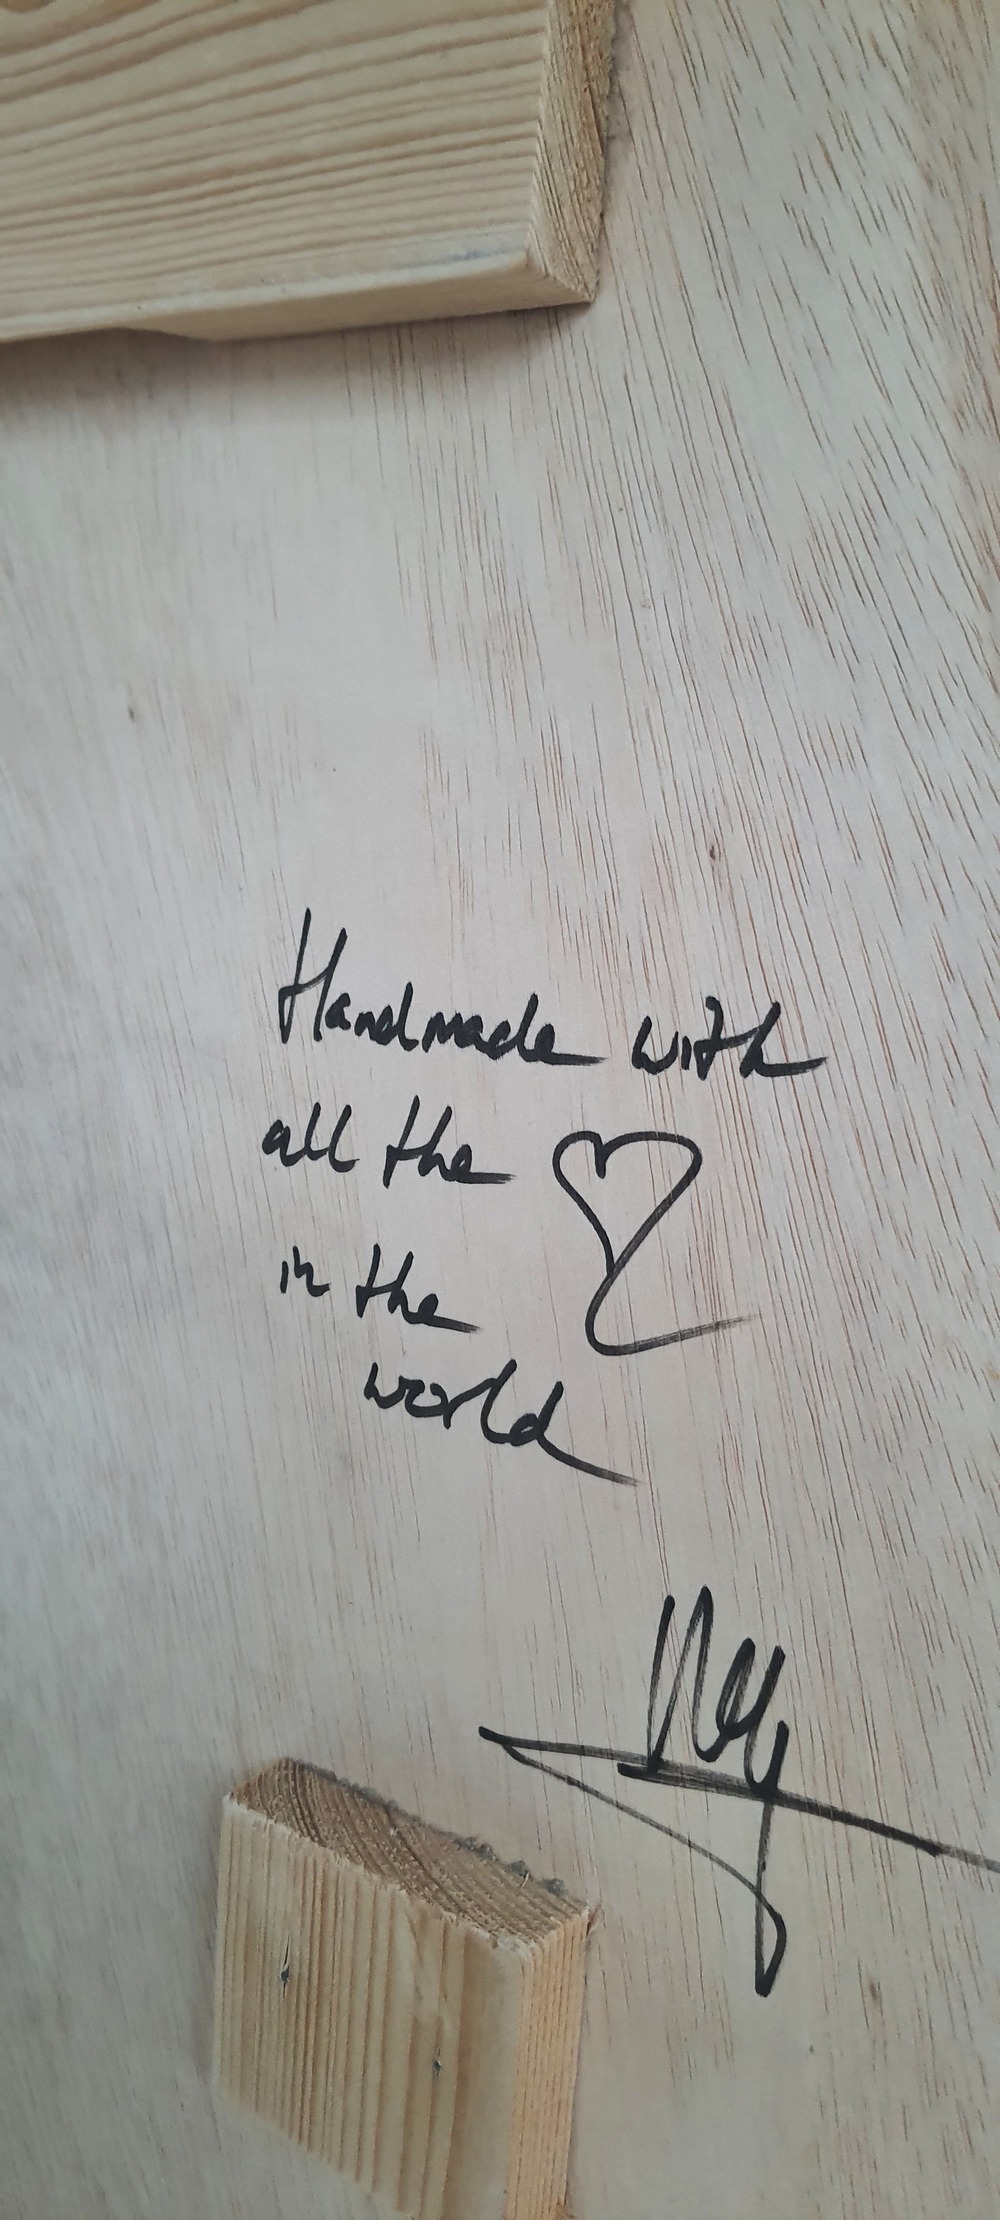 Handmade with
all the ♡
in the
world